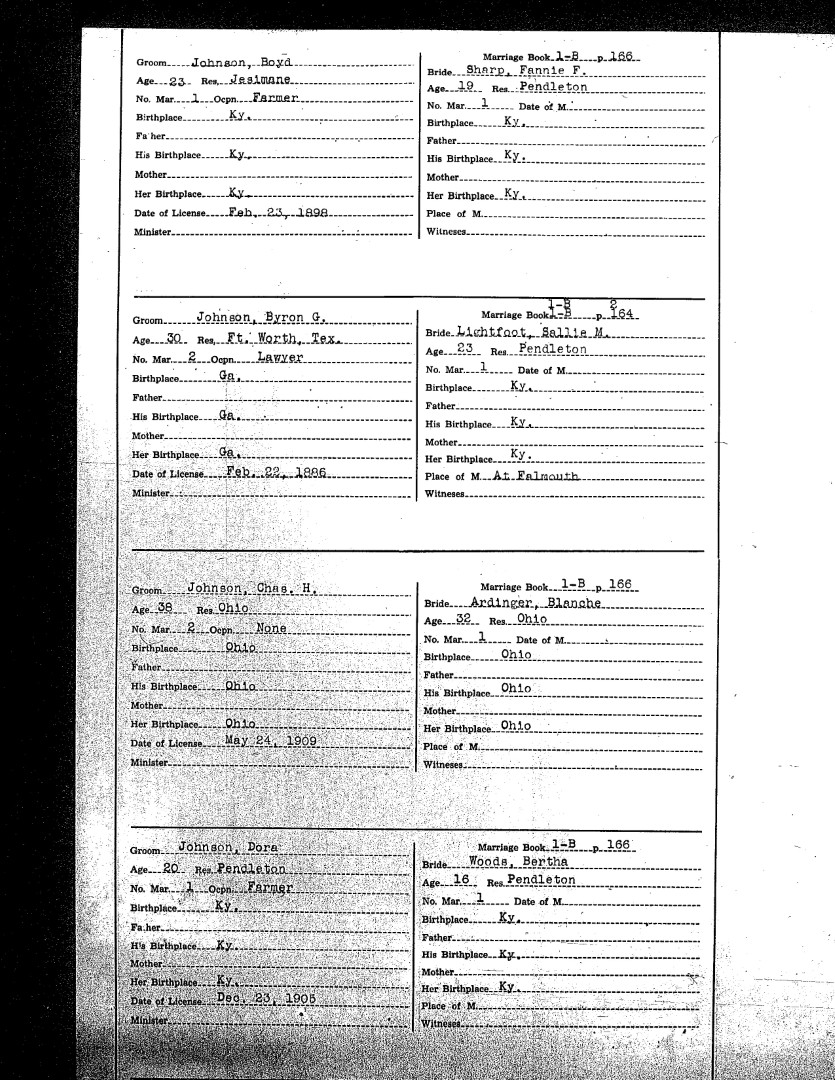 Groom Johnson, Boyd
Age 23 Res. Jesimane
No. Mar. 1 Ocpn. Farmer
Birthplace Ky.
Fa her
His Birthplace Ky.
Mother
Her Birthplace Ky.
Date of License Feb. 23, 1898
Minister
Marriage Book 1-B p. 166
Bride Sharp, Fannie F.
Age 19 Res. Pendleton
No. Mar. 1 Date of M.
Birthplace Ky.
Father
His Birthplace Ky.
Mother
Her Birthplace Ky.
Place of M.
Witneses
Groom Johnson, Byron G.
Age 30 Res. Ft. Worth, Tex.
No. Mar. 2 Ocpn. Lawyer
Birthplace Ga.
Father
His Birthplace Ga.
Mother
Her Birthplace Ga.
Date of License Feb. 22, 1886
Minister
1-B 2
Marriage Book 1-B p. 164
Bride Lightfoot, Sallie M.
Age 23 Res. Pendleton
No. Mar. 1 Date of M.
Birthplace Ky.
Father
His Birthplace Ky.
Mother
Her Birthplace Ky.
Place of M. At Falmouth
Witneses
Groom Johnson, Chas. H.
Age 38 Res. Ohio
No. Mar. 2 Ocpn. None
Birthplace Ohio
Father
His Birthplace Ohio
Mother
Her Birthplace Ohio
Date of License May 24, 1909
Minister
Marriage Book 1-B p. 166
Bride Ardinger, Blanche
Age 32 Res. Ohio
No. Mar. 1 Date of M.
Birthplace Ohio
Father
His Birthplace Ohio
Mother
Her Birthplace Ohio
Place of M.
Witneses
Groom Johnson, Dora
Age 20 Res. Pendleton
No. Mar. 1 Ocpn. Farmer
Birthplace Ky.
Fa her
His Birthplace Ky.
Mother
Her Birthplace Ky.
Date of License Dec. 23, 1905
Minister
Marriage Book 1-B p. 166
Bride Woods, Bertha
Age 16 Res. Pendleton
No. Mar. 1 Date of M.
Birthplace Ky.
Father
His Birthplace Ky.
Mother
Her Birthplace Ky.
Place of M.
Witneses